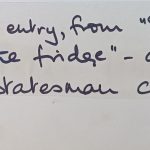 entry, from "
fridge" -
statesman c